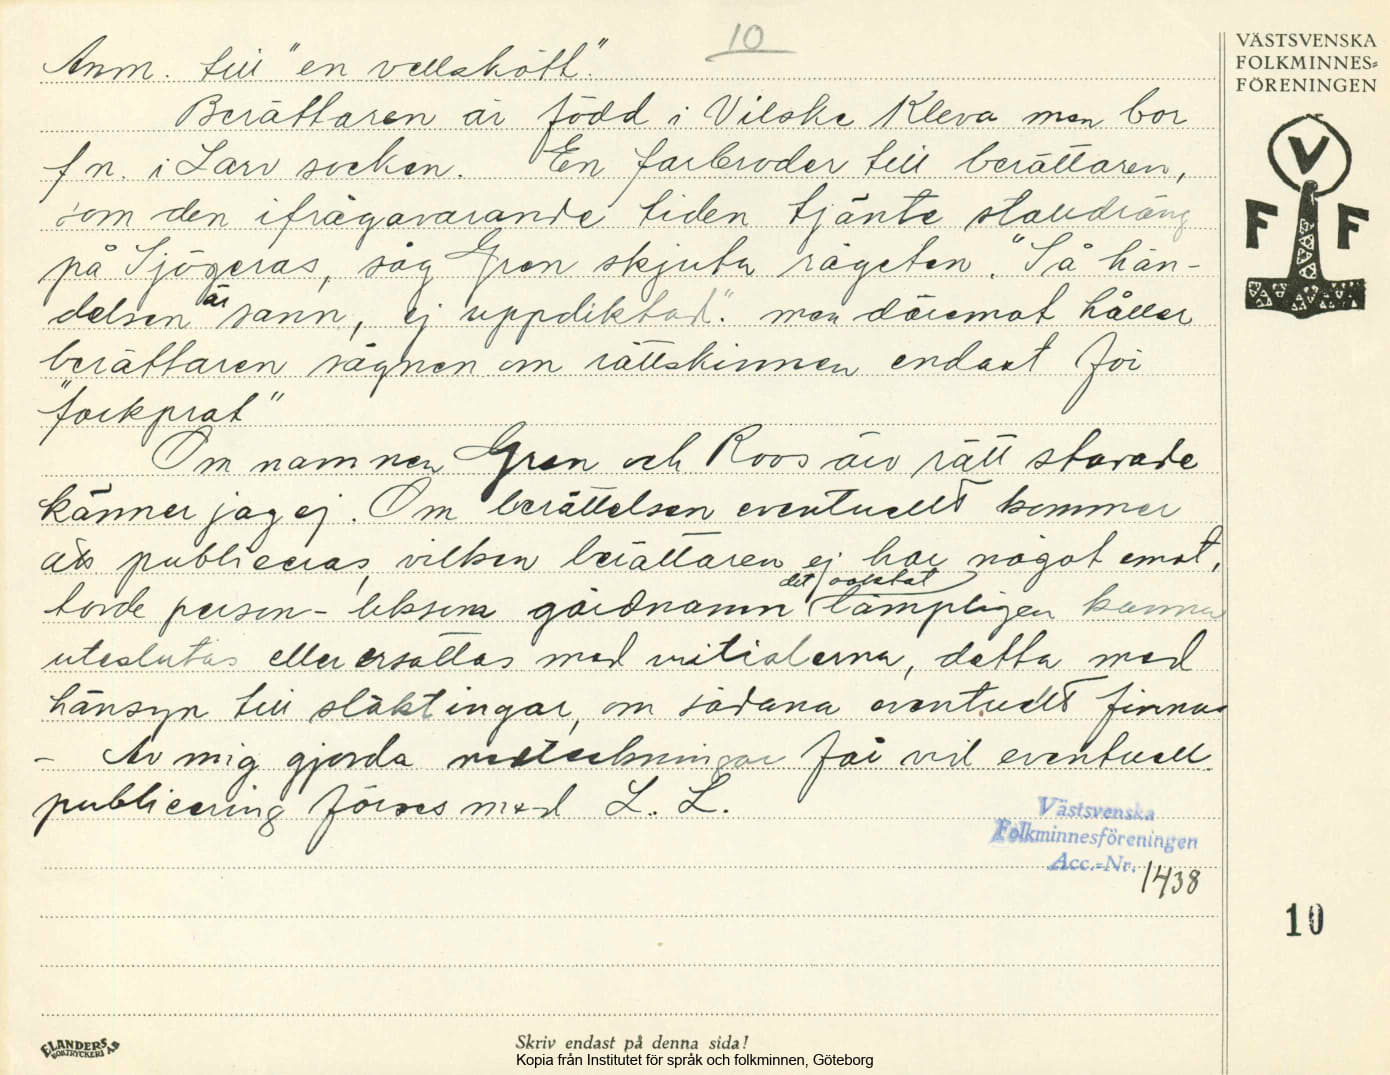 10
Anm. till "en vellskött".
Berättaren är född i Vilske Kleva men bor
f n. i Larv socken. En farbroder till berättaren,
som den ifrågavarande tiden tjänte stalldräng
på Sjögeras, såg Gren skjuta rågeten. "Så hän-
delsen är sann, ej uppdiktad". men däremot håller
berättaren sägnen om rättskinnen endast för
"folkprat"
Om namnen Gren och Roos äro rätt stavade
känner jag ej. Om berättelsen eventuellt kommer
att publiceras, vilken berättaren ej har något emot,
torde person- liksom gårdnamn det oaktat lämpligen kunna
uteslutas eller ersättas med initialerna, detta med
hänsyn till släktingar, om sådana eventuellt finnas
- Av mig gjorda uppteckningar får vid eventuell
publicering förses med L. L.
VÄSTSVENSKA
FOLKMINNES-
FÖRENINGEN
V
F F
Västsvenska
Folkminnesföreningen
Acc.-Nr. 1438
10
ELANDERS
BOKTRYCKERI AB
Skriv endast på denna sida!
Kopia från Institutet för språk och folkminnen, Göteborg